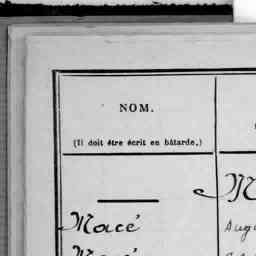 NOM.
(Il doit être écrit en bâtarde.)
M
Macé
Augu
Macé